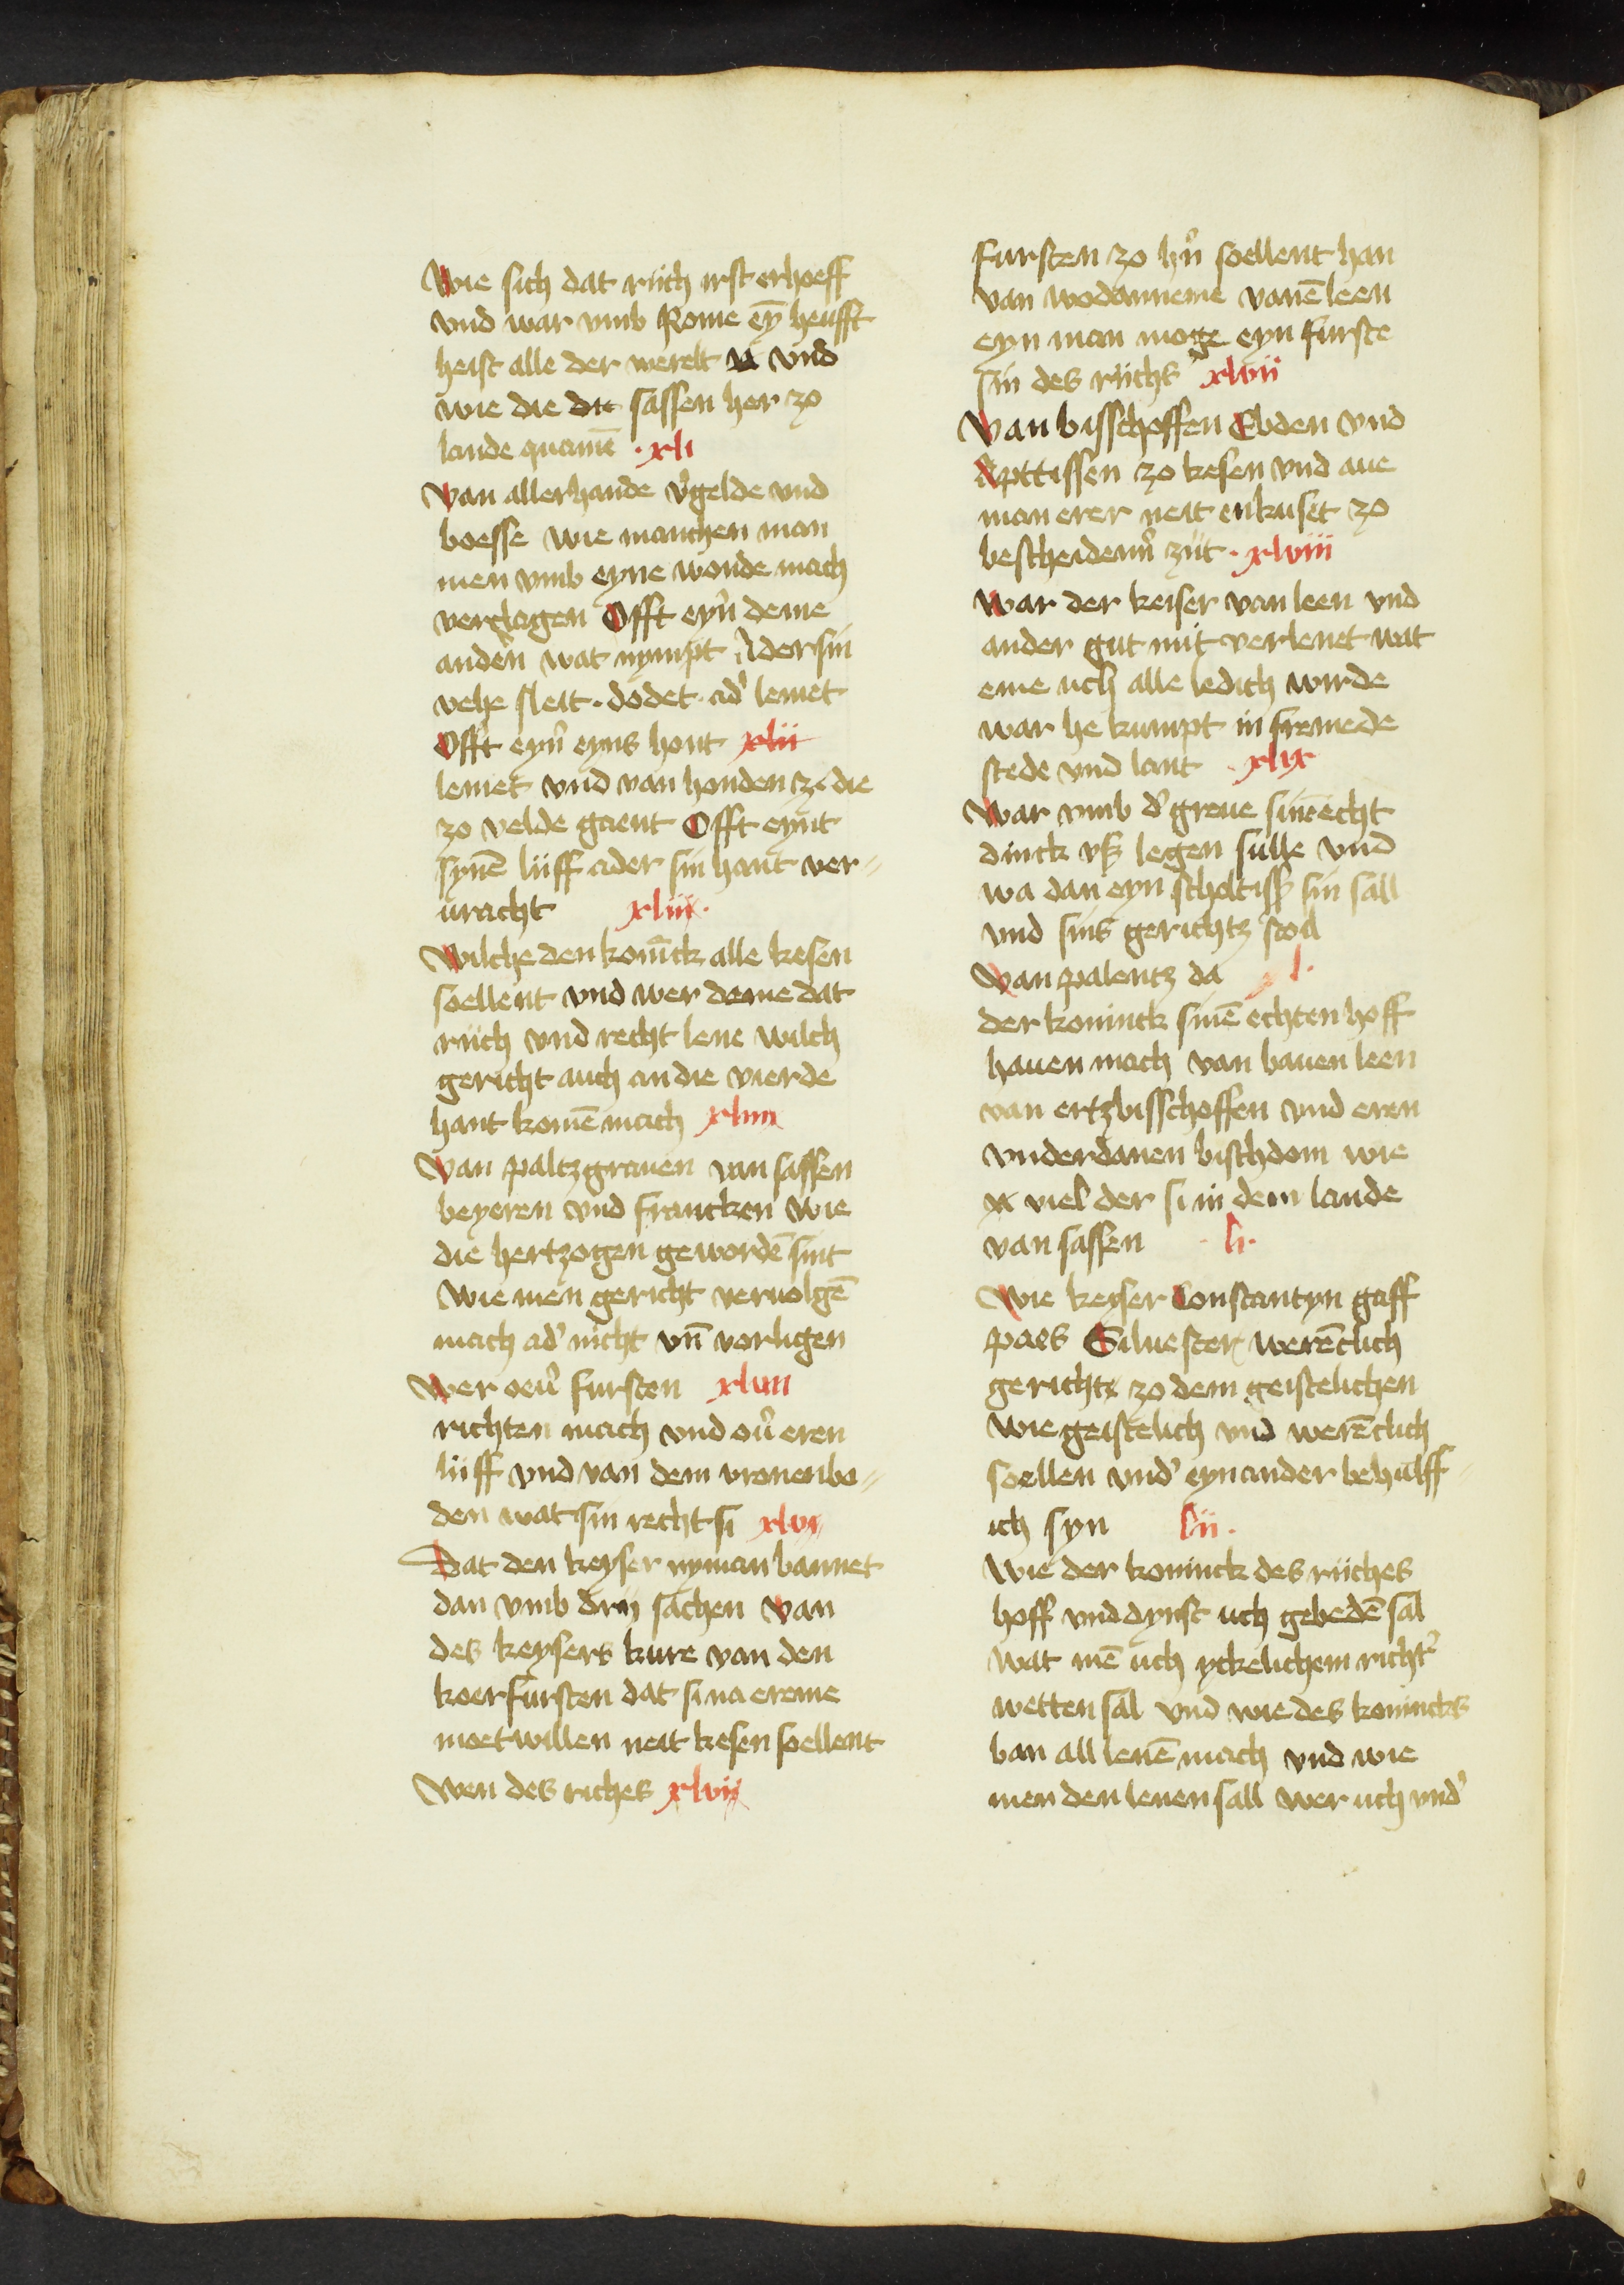 Wie sich dat riich irst erhoeff
vnd war vmb Rome eȳ heufft
heist alle der werelt vnd
wie die die sassen her zo
lande quamē · xli
Van allerhande v'gelde vnd
boesse wie manchen man
men vmb eyne wonde mach
verclagen Offt eyn' deme
anderen wat nympt Ader sin
vehe sleit · dodet · ad' lemet
Offt eyn' eyns hont xlii
lemet vnd van honden die
zo velde gaent Offt eynt
synē liiff ader sin hant ver⸗
uracht xliii ·
Wilche den konīck alle kesen
soellent vnd wer deme dat
riich vnd recht lene wilch
gericht auch an die vierde
hant komē mach xliiii
Van paltzgrauen van sassen
beyeren vnd francken wie
die hertzogen gewordē sint
wie men gericht veruolgē
mach ad' nicht vn̄ vorligen
Wer oeu' fursten xlvii
richten mach vnd ou' eren
liiff vnd van dem vronenbo⸗
den wat sin recht si xlvi
Dat den keyser nyman bannet
dan vmb drij sachen van
des keysers kure van den
koerfursten dat si na ereme
moetwillen neit kesen soellent
Wen des riches xlvii
fursten zo h'n soellent han
van wodanneme vanē leen
eyn man moge eyn furste
sin des riichs xlvii
Van bisschoffen Ebden vnd
Apttissen zo kesen vnd aue
man erer neit enkuset zo
bescheidenn' ziit · xlviii
War der keiser van leen vnd
ander gut mit verlenet wat
eme uch alle ledich wirde
war he kumpt in fremede
stede vnd lant · xlix
War vmb d' greue sin echt
dinck vß legen sulle vnd
wa dan eyn scholtiß sin sall
vnd sins gerichtz stoil
Van palentz da l ·
der koninck sinē echten hoff
hauen mach van bauen leen
van ertzbisschoffen vnd eren
vnderdanen bischdom wie
viel der si in dem lande
van sassen · li ·
Wie keyser Constantyn gaff
paes Siluester werētlich
gericht zo dem geistelichen
wie geistelich vnd werētlich
soellen vnd' eynander behulff⸗
ich syn lii ·
Wie der koninck des riiches
hoff vnd dynst uch gebedē sal
wat mē uch yckelichem richt'
wetten sal vnd wie des konincks
ban all lenē mach vnd wie
men den lenen sall wer uch vnd'